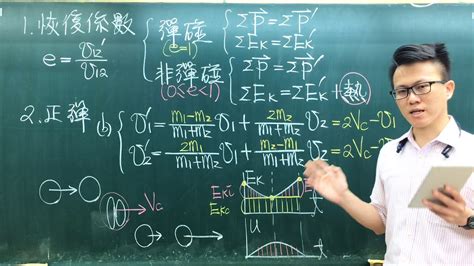 1. 恢復係數
e = v₁₂' / v₁₂
彈碰 (e=1) { Σp⃗ = Σp⃗'
ΣEk = ΣEk'
非彈碰 (0<e<1) { Σp⃗ = Σp⃗'
ΣEk = ΣEk' + 熱
2. 正彈
(b) { v₁' = (m₁-m₂)/(m₁+m₂) v₁ + 2m₂/(m₁+m₂) v₂ = 2Vc - v₁
v₂' = 2m₁/(m₁+m₂) v₁ + (m₂-m₁)/(m₁+m₂) v₂ = 2Vc - v
Vc
Ek
Eki
Ekc
t
U
t